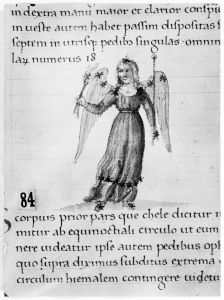 in dextra manu maior et clarior conspi
in ueste autem habet passim dispositas
septem in utrisq; pedib; singulas omnin
numerus 18
84
corpus prior pars que chele dicitur
mitur ab equinoctiali circulo ut cum
nere uideatur ipse autem pedibus
quo supra diximus subditus extrema
circulum hiemalem contingere uidetur